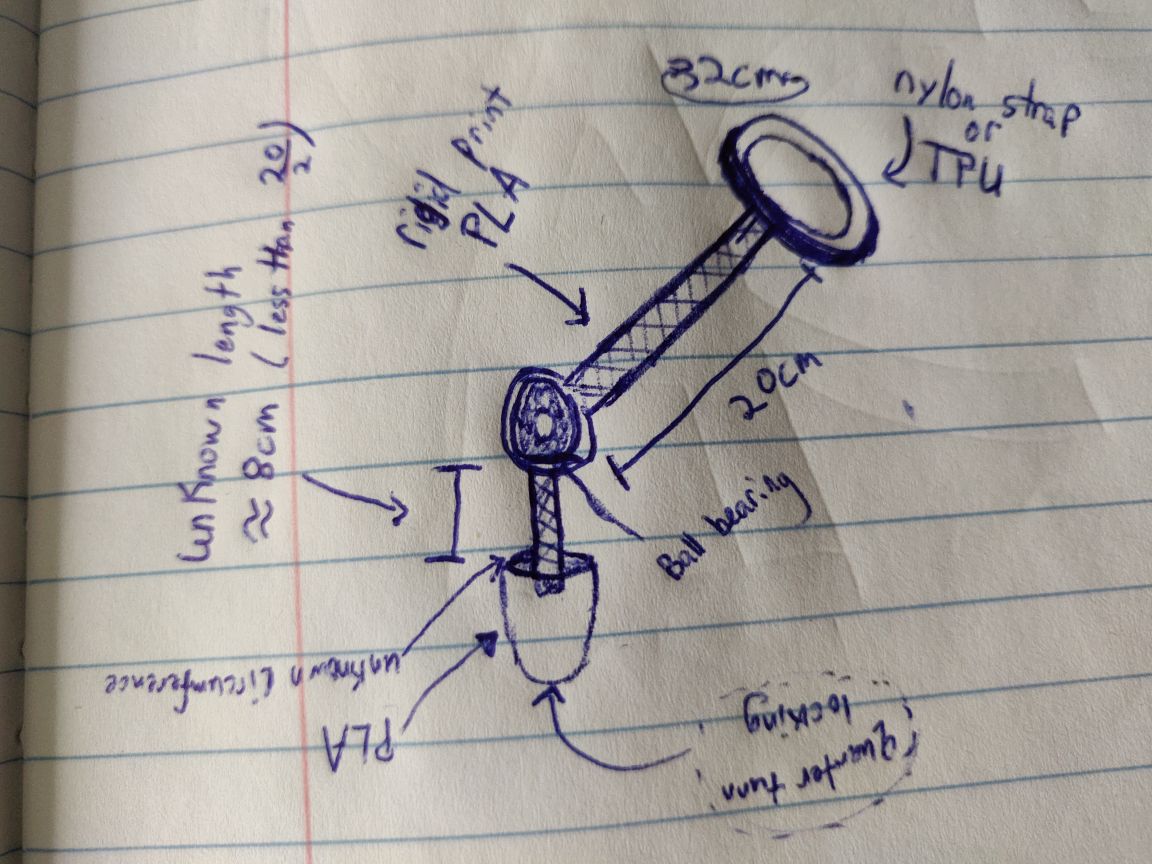 32cm
nylon strap
or
TPU
rigid print
PLA
unknown length
≈ 8cm (less than 20/2)
20cm
Ball bearing
unknown circumference
PLA
quarter turn
locking